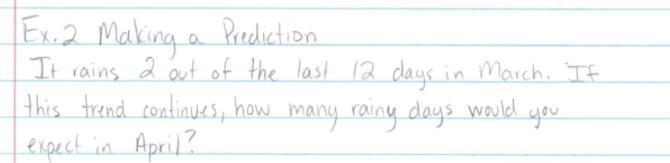 Ex. 2 Making a Prediction
It rains 2 out of the last 12 days in March. If
this trend continues, how many rainy days would you
expect in April?